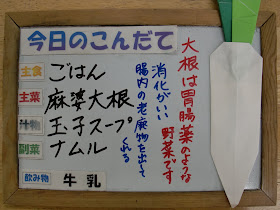 今日のこんだて
主食 ごはん
主菜 麻婆大根
汁物 玉子スープ
副菜 ナムル
飲み物 牛乳
大根は胃腸薬のような
野菜です
消化がいい
腸内の老廃物を出して
くれる